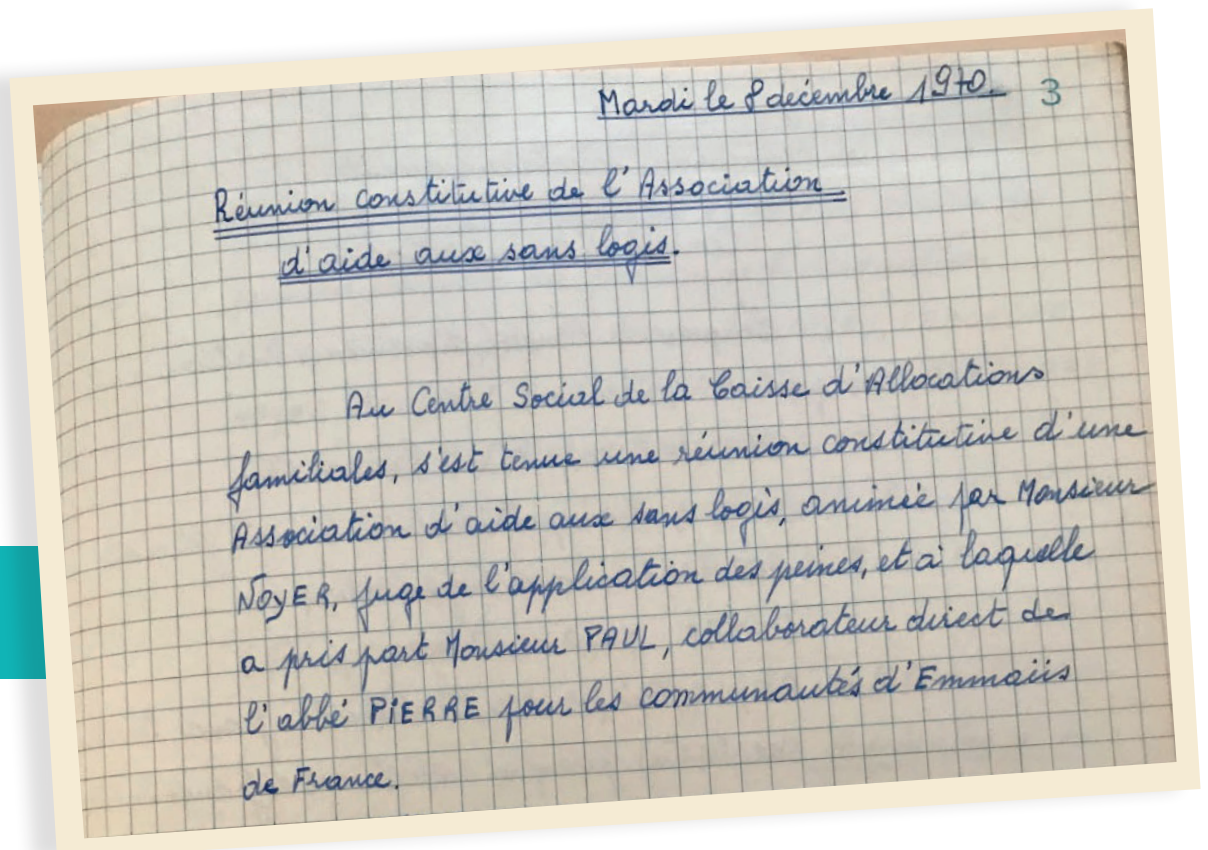 Mardi le 8 décembre 1970. 3
Réunion constitutive de l'Association
d'aide aux sans logis.
Au Centre Social de la Caisse d'Allocations
familiales, s'est tenue une réunion constitutive d'une
Association d'aide aux sans logis, animée par Monsieur
NOYER, juge de l'application des peines, et à laquelle
a pris part Monsieur PAUL, collaborateur direct de
l'abbé PIERRE pour les communautés d'Emmaüs
de France.